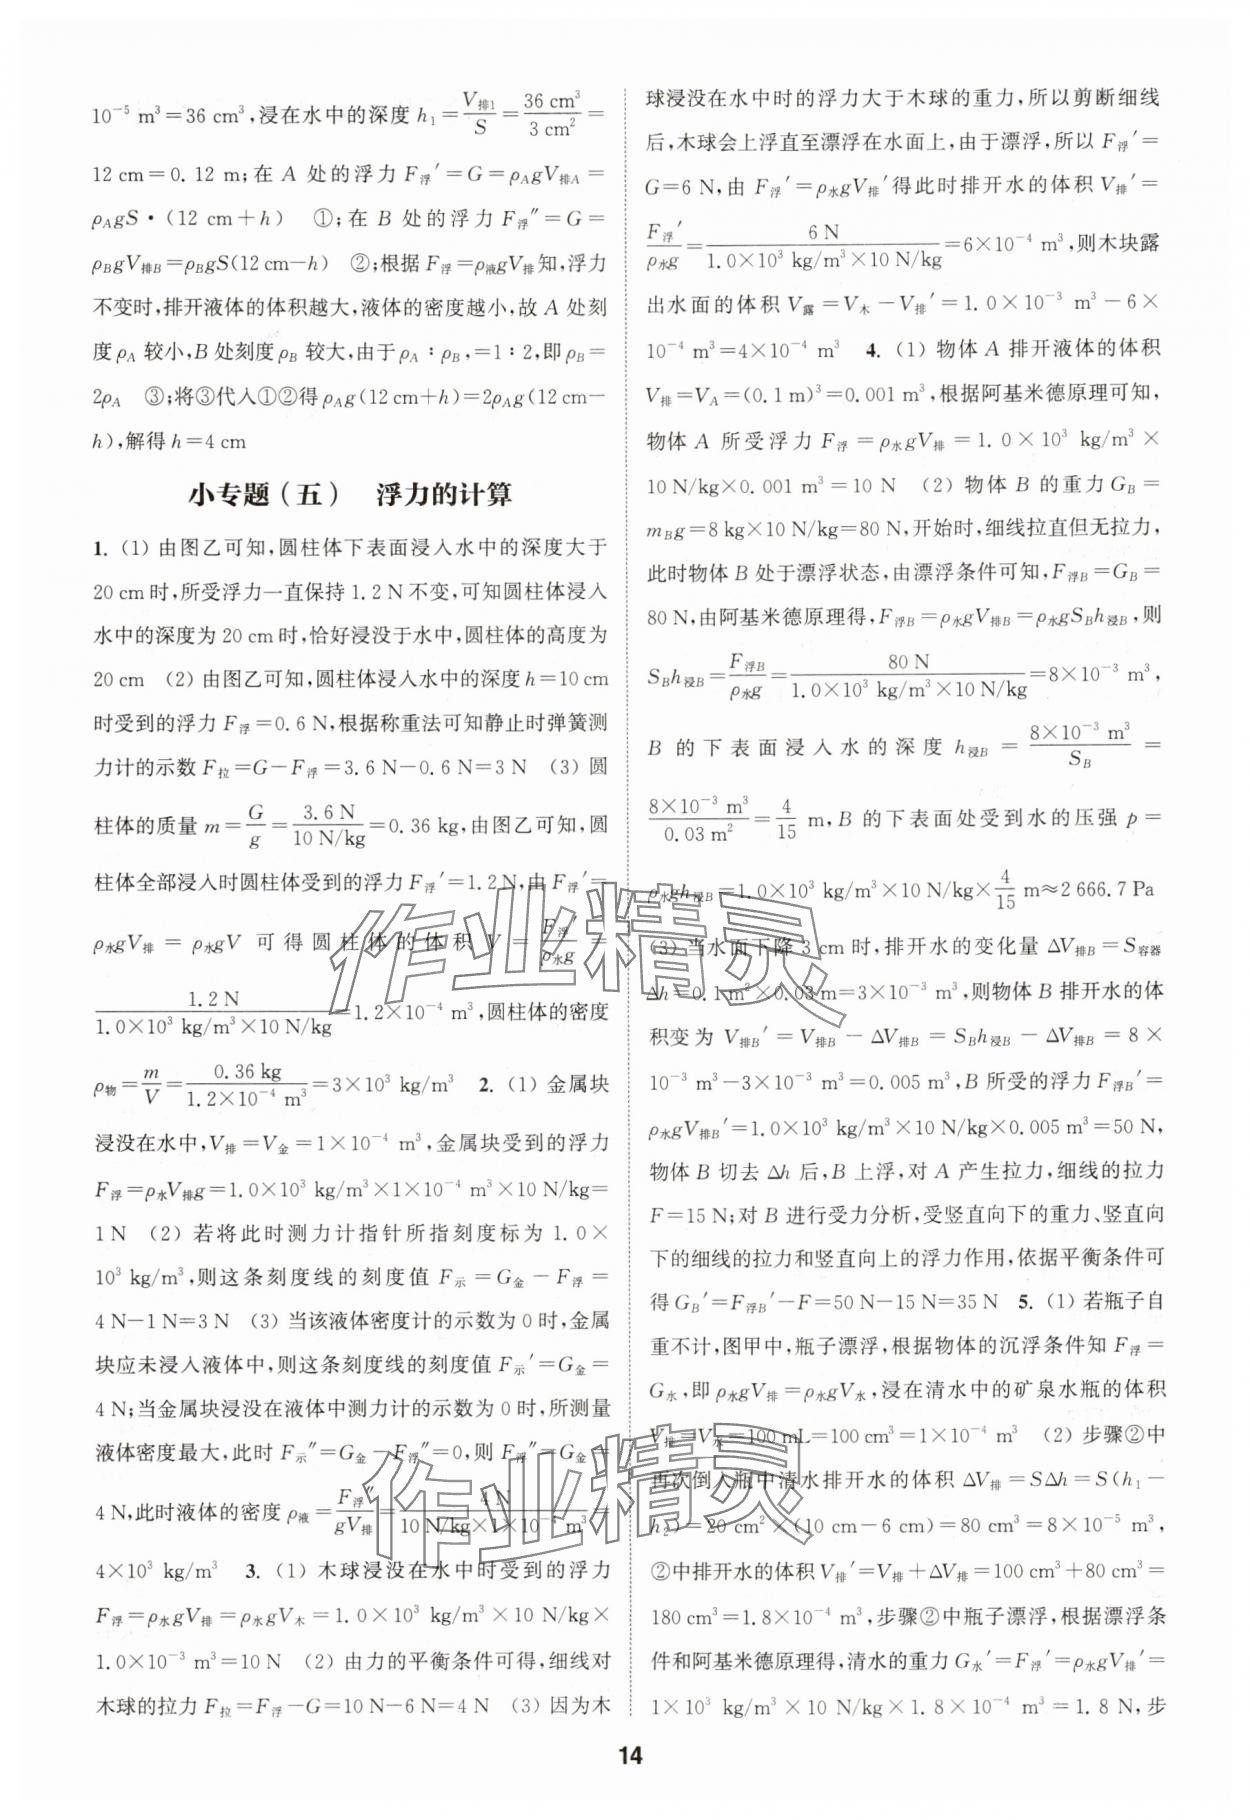 10⁻⁵ m³＝36 cm³,浸在水中的深度 h₁＝V排1/S＝36 cm³/3 cm²＝
12 cm＝0. 12 m;在 A 处的浮力 F浮′＝G＝ρAgV排A＝
ρAgS·(12 cm＋h) ①;在 B 处的浮力 F浮″＝G＝
ρBgV排B＝ρBgS(12 cm－h) ②;根据 F浮＝ρ液gV排 知,浮力
不变时,排开液体的体积越大,液体的密度越小,故 A 处刻
度 ρA 较小,B 处刻度 ρB 较大,由于 ρA∶ρB,＝1∶2,即 ρB＝
2ρA ③;将③代入①②得 ρAg(12 cm＋h)＝2ρAg(12 cm－
h),解得 h＝4 cm
小专题(五) 浮力的计算
1. (1) 由图乙可知,圆柱体下表面浸入水中的深度大于
20 cm 时,所受浮力一直保持 1. 2 N 不变,可知圆柱体浸入
水中的深度为 20 cm 时,恰好浸没于水中,圆柱体的高度为
20 cm (2) 由图乙可知,圆柱体浸入水中的深度 h＝10 cm
时受到的浮力 F浮＝0. 6 N,根据称重法可知静止时弹簧测
力计的示数 F拉＝G－F浮＝3. 6 N－0. 6 N＝3 N (3) 圆
柱体的质量 m＝G/g＝3. 6 N/10 N/kg＝0. 36 kg,由图乙可知,圆
柱体全部浸入时圆柱体受到的浮力 F浮′＝1. 2 N,由 F浮′＝
ρ水gV排＝ρ水gV 可得圆柱体的体积 V＝F浮′/ρ水g＝
1. 2 N/1. 0×10³ kg/m³×10 N/kg＝1. 2×10⁻⁴ m³,圆柱体的密度
ρ物＝m/V＝0. 36 kg/1. 2×10⁻⁴ m³＝3×10³ kg/m³ 2. (1) 金属块
浸没在水中,V排＝V金＝1×10⁻⁴ m³,金属块受到的浮力
F浮＝ρ水V排g＝1. 0×10³ kg/m³×1×10⁻⁴ m³×10 N/kg＝
1 N (2) 若将此时测力计指针所指刻度标为 1. 0×
10³ kg/m³,则这条刻度线的刻度值 F示＝G金－F浮＝
4 N－1 N＝3 N (3) 当该液体密度计的示数为 0 时,金属
块应未浸入液体中,则这条刻度线的刻度值 F示′＝G金＝
4 N;当金属块浸没在液体中测力计的示数为 0 时,所测量
液体密度最大,此时 F示″＝G金－F浮″＝0,则 F浮″＝G金＝
4 N,此时液体的密度 ρ液＝F浮″/gV排＝4 N/10 N/kg×1×10⁻⁴ m³＝
4×10³ kg/m³ 3. (1) 木球浸没在水中时受到的浮力
F浮＝ρ水gV排＝ρ水gV木＝1. 0×10³ kg/m³×10 N/kg×
1. 0×10⁻³ m³＝10 N (2) 由力的平衡条件可得,细线对
木球的拉力 F拉＝F浮－G＝10 N－6 N＝4 N (3) 因为木
球浸没在水中时的浮力大于木球的重力,所以剪断细线
后,木球会上浮直至漂浮在水面上,由于漂浮,所以 F浮′＝
G＝6 N,由 F浮′＝ρ水gV排′得此时排开水的体积 V排′＝
F浮′/ρ水g＝6 N/1. 0×10³ kg/m³×10 N/kg＝6×10⁻⁴ m³,则木块露
出水面的体积 V露＝V木－V排′＝1. 0×10⁻³ m³－6×
10⁻⁴ m³＝4×10⁻⁴ m³ 4. (1) 物体 A 排开液体的体积
V排＝VA＝(0. 1 m)³＝0. 001 m³,根据阿基米德原理可知,
物体 A 所受浮力 F浮＝ρ水gV排＝1. 0×10³ kg/m³×
10 N/kg×0. 001 m³＝10 N (2) 物体 B 的重力 GB＝
mBg＝8 kg×10 N/kg＝80 N,开始时,细线拉直但无拉力,
此时物体 B 处于漂浮状态,由漂浮条件可知,F浮B＝GB＝
80 N,由阿基米德原理得,F浮B＝ρ水gV排B＝ρ水gSBh浸B,则
SBh浸B＝F浮B/ρ水g＝80 N/1. 0×10³ kg/m³×10 N/kg＝8×10⁻³ m³,
B 的下表面浸入水的深度 h浸B＝8×10⁻³ m³/SB＝
8×10⁻³ m³/0. 03 m²＝4/15 m,B 的下表面处受到水的压强 p＝
ρ水gh浸B＝1. 0×10³ kg/m³×10 N/kg×4/15 m≈2 666. 7 Pa
(3) 当水面下降 3 cm 时,排开水的变化量 ΔV排B＝S容器
Δh＝0. 1 m²×0. 03 m＝3×10⁻³ m³,则物体 B 排开水的体
积变为 V排B′＝V排B－ΔV排B＝SBh浸B－ΔV排B＝8×
10⁻³ m³－3×10⁻³ m³＝0. 005 m³,B 所受的浮力 F浮B′＝
ρ水gV排B′＝1. 0×10³ kg/m³×10 N/kg×0. 005 m³＝50 N,
物体 B 切去 Δh 后,B 上浮,对 A 产生拉力,细线的拉力
F＝15 N;对 B 进行受力分析,受竖直向下的重力、竖直向
下的细线的拉力和竖直向上的浮力作用,依据平衡条件可
得 GB′＝F浮B′－F＝50 N－15 N＝35 N 5. (1) 若瓶子自
重不计,图甲中,瓶子漂浮,根据物体的沉浮条件知 F浮＝
G水,即 ρ水gV排＝ρ水gV水,浸在清水中的矿泉水瓶的体积
V排＝V水＝100 mL＝100 cm³＝1×10⁻⁴ m³ (2) 步骤②中
再次倒入瓶中清水排开水的体积 ΔV排＝SΔh＝S(h₁－
h₂)＝20 cm²×(10 cm－6 cm)＝80 cm³＝8×10⁻⁵ m³,
②中排开水的体积 V排′＝V排＋ΔV排＝100 cm³＋80 cm³＝
180 cm³＝1. 8×10⁻⁴ m³,步骤②中瓶子漂浮,根据漂浮条
件和阿基米德原理得,清水的重力 G水′＝F浮′＝ρ水gV排′＝
1×10³ kg/m³×10 N/kg×1. 8×10⁻⁴ m³＝1. 8 N,步
作业精灵
作业精灵
14